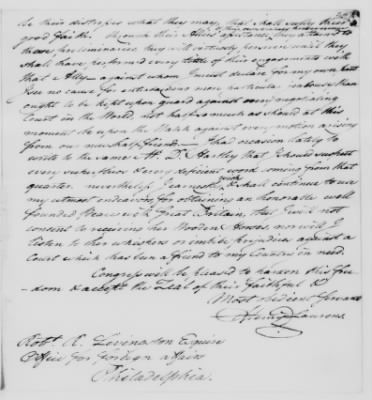 be their distresses what they may, that shall rely their
good faith. through their Allies assistance they attained to
these preliminaries they will virtuously persevere until they
shall have perform'd every tittle of their engagements with
that Ally against whom I must declare for my own part
I see no cause for extraordinary more particular jealousy than
ought to be kept upon guard against every negotiating
Court in the World, nor half so much as should at this
moment be upon the Watch against every motion arising
from our new half friends—I had occasion lately to
write to the same Mr. D. Hartley that I should suspect
every and every deficient word coming from that
quarter nevertheless I earnestly & shall continue to use
my utmost endeavors for obtaining an honorable well
founded Peace with Great Britain, but I will not
consent to receiving her Wooden Horses nor will I
listen to her whispers or imbibe prejudices against a
Court which has been a friend to my Country in need.
Congress will be pleased to pardon this free-
dom & accept the Zeal of their faithful &
Most obedient Servant
Henry Laurens
Robt. R. Livingston Esquire
Office for foreign affairs
Philadelphia.